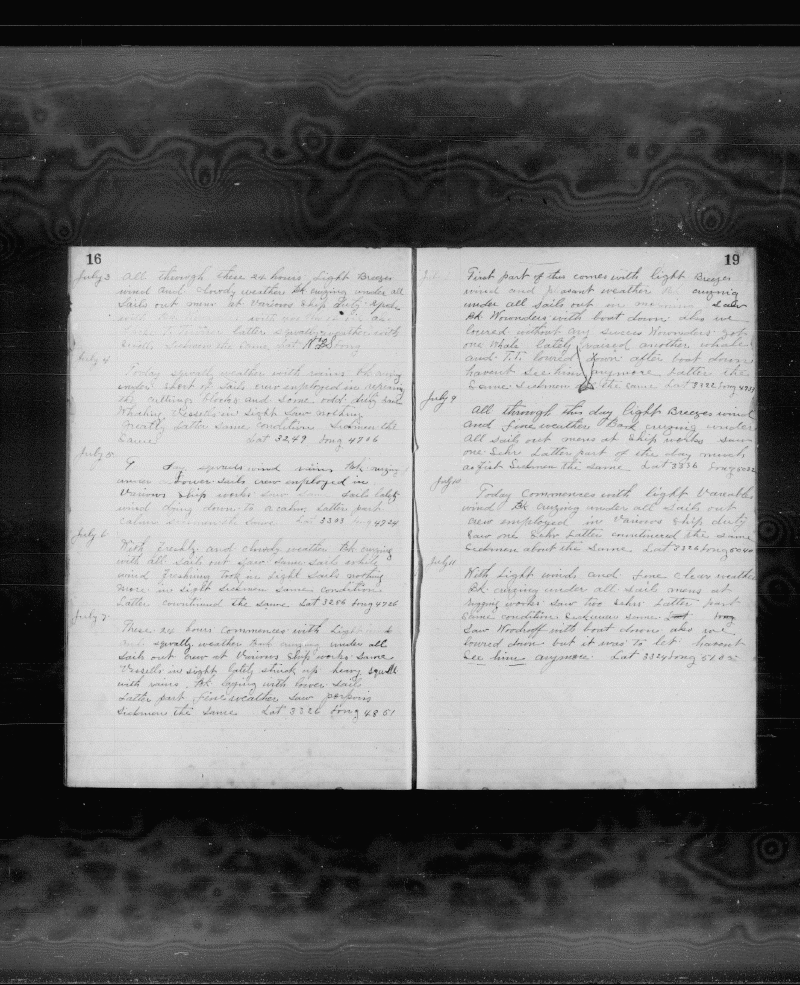 16
July 3 All through these 24 hours Light Breezes
wind and cloudy weather Bk cruzing under all
Sails out men at Various Ship Duty
with
latter squally weather with
Sickmen the same Lat N Long
July 4
Today squally weather with rains Bk cruzing
under short of sails crew employed in
the cutting blocks and some odd
Whaling Vessells in sight Saw nothing
Mostly Latter same condition Sickmen the
Same Lat 3249 Long 4756
July 5
day squals wind rains Bk cruzing
under lower sails crew employed in
Various ship works saw sails lately
wind dying down to a calm, Latter part
Calms sickmen the same Lat 3303 Long 4724
July 6
With freshly and clowdy weather Bk cruzing
with all sails out Saw same sails while
wind freshning Took in light sails nothing
more in sight Sickmen same condition
Latter countinued the same Lat 3286 Long 4726
July 7
These 24 hours commences with Light
squally weather Bark cruzing under all
Sails out crew at Various Ship works same
Vessells in sight lately struck up heavy squalls
with rains. Bk laying with lower sails
Latter part fine weather saw
Sickmen the same Lat 3226 Long 4861
19
First part of this comes with light Breezes
wind and weather cruzing
under all sails out in saw
Bk Wounders with boat down also we
lowred without any succes Wounders got
one Whale lately raised another whale
and T.T. lowred soon after boat down
havent see him anymore latter the
Same Sickmen the same Lat 3322 Long
July 9
All through this day light Breezes wind
and fine weather Bark cruzing under
All sails out mens at Ship works saw
one Schr Latter part of the day much
as first Sickmen the same Lat 3336 Long
July 10
Today commences with light Variable
wind Bk cruzing under all sails out
crew employed in Various Ship duty
Saw one Schr Latter countinued the same
Sickmen about the Same Lat 3326 Long 5040
July 11
With Light winds and fine clear weather
Bk cruzing under all sails mens at
works saw two Schrs Latter part
same condition Sickmen same Lat Long
Saw Woodroff with boat down also we
lowred down but it was to let havent
See him anymore Lat 3324 Long